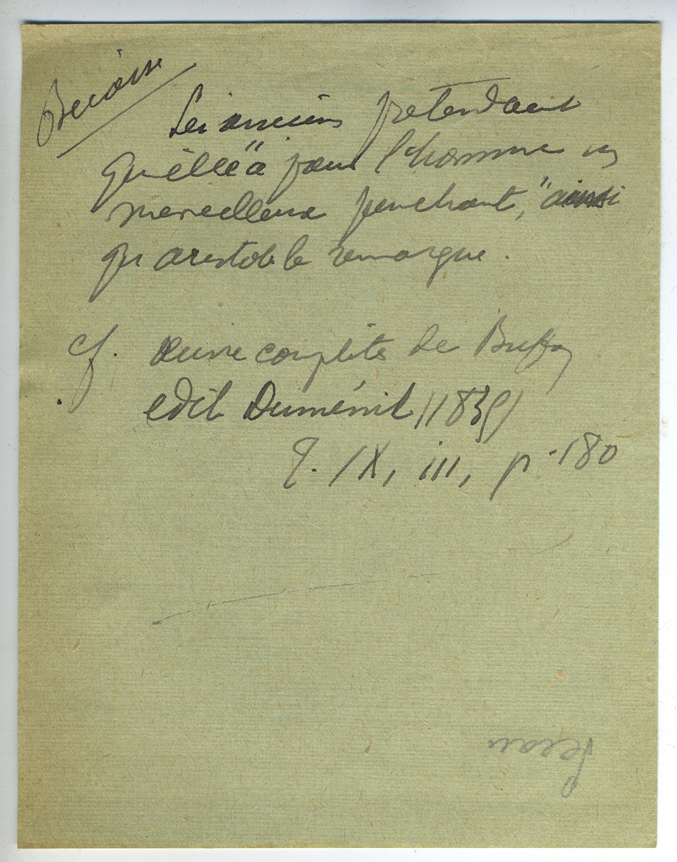 Bécasse
Les anciens prétendaient
qu'elle "a pour l'homme un
merveilleux penchant," ainsi
qu'aristote le remarque.
cf. œuvre complètes de Buffon
edit Duménil (1835)
T. IX, III, p. 180